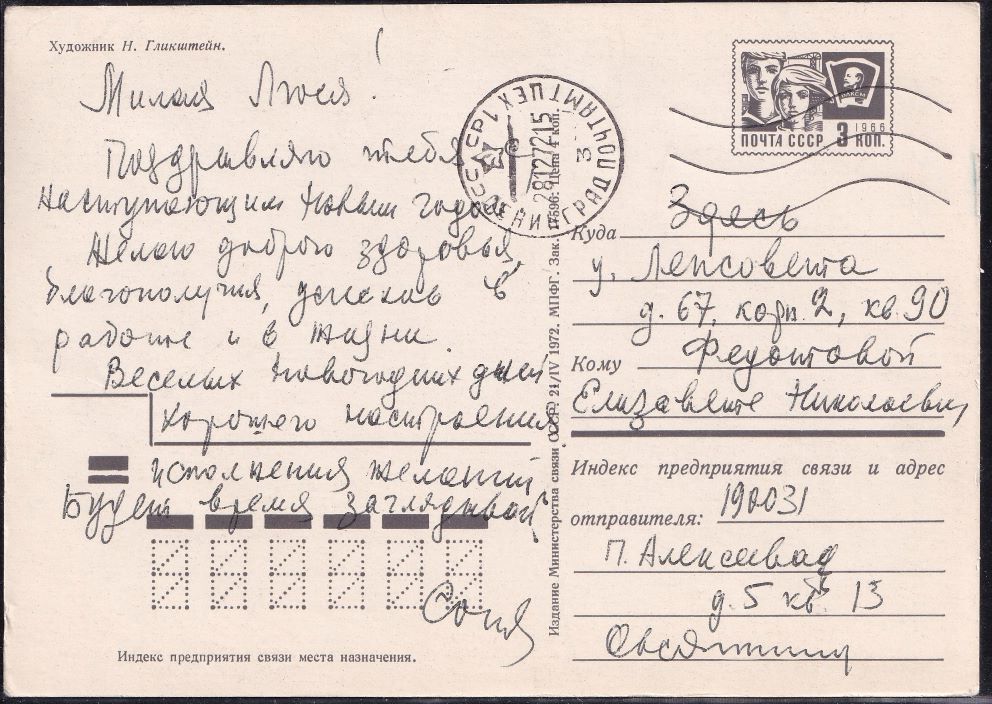 Художник Н. Гликштейн.
Милая Люся!
Поздравляю тебя
наступающим Новым годом
Желаю доброго здоровья,
благополучия, успехов в
работе и в жизни.
Веселых Новогодних дней
Хорошего настроения
исполнения желаний
Будет время заглядывай
Соня
Индекс предприятия связи места назначения.
ПОЧТА СССР
3 КОП.
1966
ВЛКСМ
ЛЕНИНГРАД ПОЧТАМТ ЦЕХ 1
СССР
281272 15
3
Издание Министерства связи СССР. 21/IV 1972. МПФГ. Зак. 17596. Цена 4 коп.
Куда Здесь
у. Ленсовета
д. 67, корп. 2, кв 90
Кому Федотовой
Елизавете Николаевн
Индекс предприятия связи и адрес
отправителя: 190031
П.
д. 5 кв 13